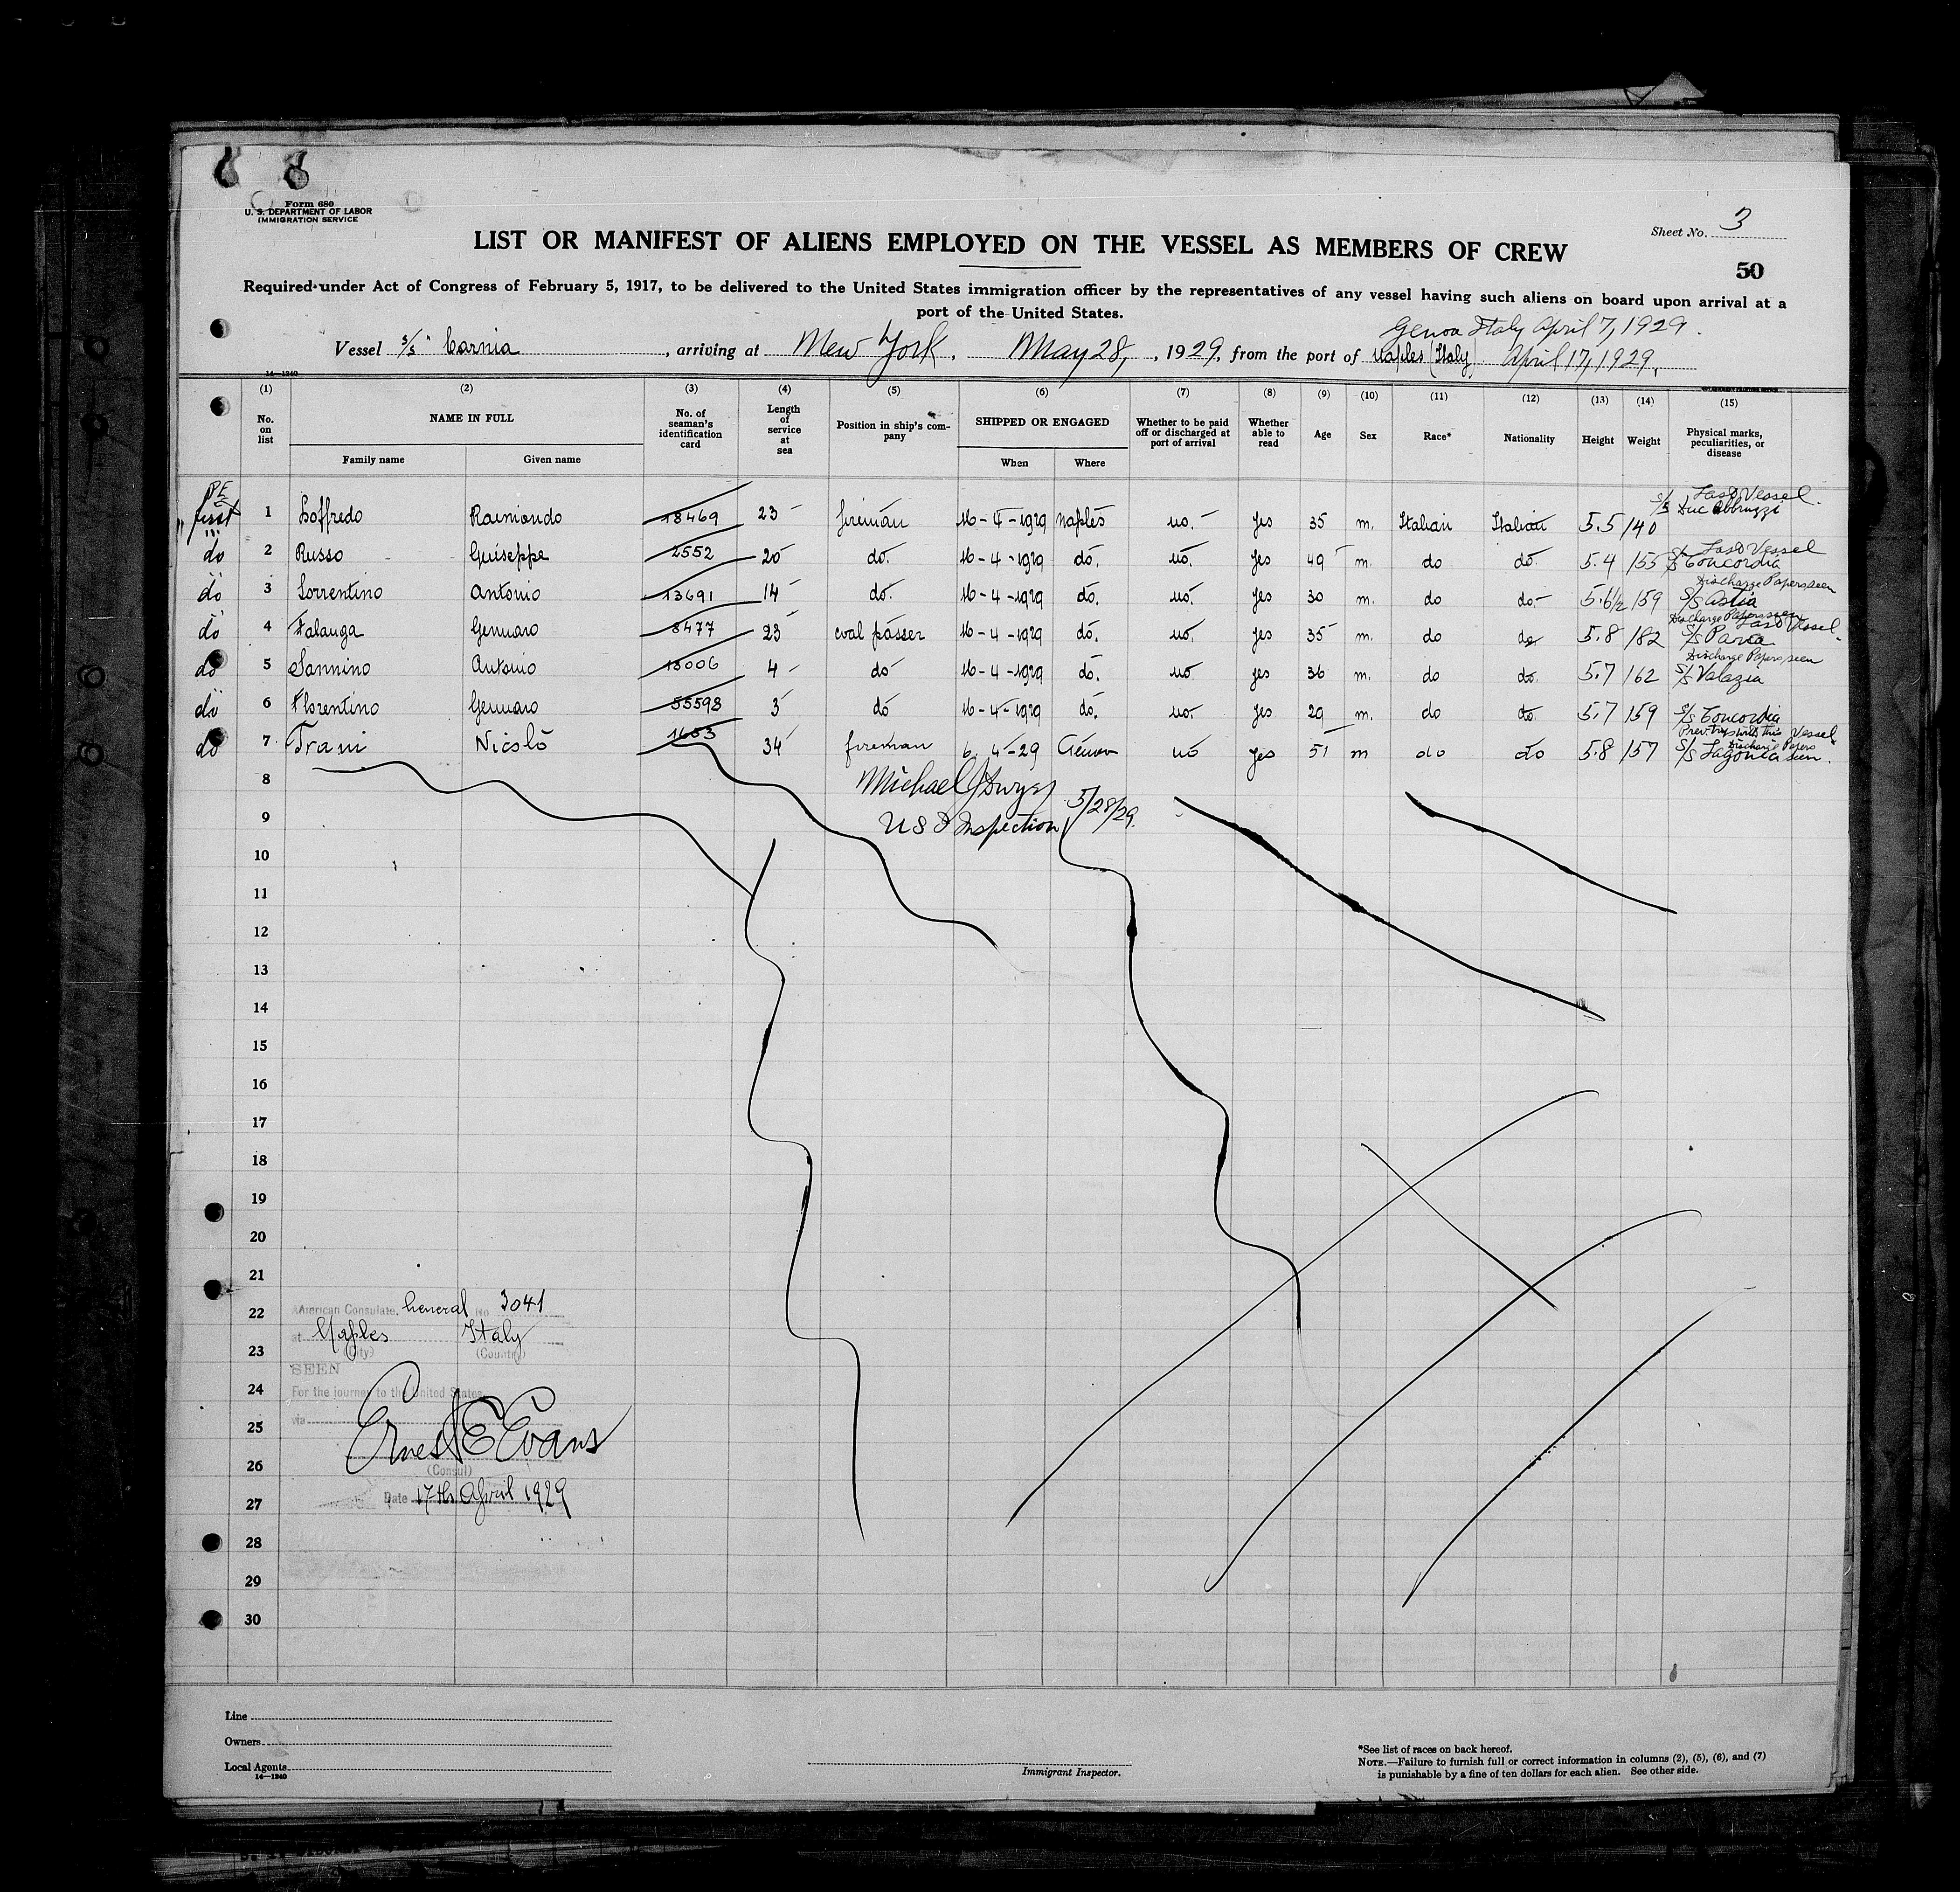 Form 680
U. S. DEPARTMENT OF LABOR
IMMIGRATION SERVICE
Sheet No. 3
LIST OR MANIFEST OF ALIENS EMPLOYED ON THE VESSEL AS MEMBERS OF CREW
50
Required under Act of Congress of February 5, 1917, to be delivered to the United States immigration officer by the representatives of any vessel having such aliens on board upon arrival at a
port of the United States.
Genoa Italy April 7, 1929.
Vessel s/s "Carnia, arriving at New York, May 28, , 1929, from the port of Naples (Italy) April 17, 1929,
14—1240
(1) (2) (3) (4) (5) (6) (7) (8) (9) (10) (11) (12) (13) (14) (15)
No. on list NAME IN FULL No. of seaman's identification card Length of service at sea Position in ship's company SHIPPED OR ENGAGED Whether to be paid off or discharged at port of arrival Whether able to read Age Sex Race* Nationality Height Weight Physical marks, peculiarities, or disease
Family name Given name When Where
PE Last Vessel.
first 1 Soffredo Raimondo 18469 23 fireman 16-4-1929 Naples no. yes 35 m. Italian Italian 5.5 140 s/s Duc Abbruzzi
do 2 Russo Guiseppe 2552 20 do. 16-4-1929 do. no. yes 49 m. do do. 5.4 155 Last Vessel s/s Concordia
Discharge Papers seen
do 3 Sorrentino Antonio 13691 14 do. 16-4-1929 do. no. yes 30 m. do do. 5.6½ 159 s/s Astia
Discharge Papers seen Last Vessel.
do 4 Falauga Gennaro 8477 23 coal passer 16-4-1929 do. no. yes 35 m. do do. 5.8 182 s/s Pavia
Discharge Papers seen
do 5 Sannino Antonio 18006 4 do 16-4-1929 do. no yes 36 m. do do. 5.7 162 s/s Valazia
do 6 Florentino Gennaro 55598 3 do 16-4-1929 do. no. yes 29 m. do do. 5.7 159 s/s Concordia
Prev. trips with this Vessel
do 7 Trani Nicolò 1653 34 fireman 6. 4-29 Genova no yes 51 m do do 5.8 157 s/s Lagonia Discharge Papers seen.
8 Michael J Dwyer
9 US I Inspection 5/28/29.
10
11
12
13
14
15
16
17
18
19
20
21
22 American Consulate, General No 3041
at Naples Italy
23 (City) (Country)
SEEN
24 For the journey to the United States
25 via
Ernest E Evans
26 (Consul)
27 Date 17th April 1929
28
29
30
Line
Owners
Local Agents
14—1240
Immigrant Inspector.
*See list of races on back hereof.
NOTE.—Failure to furnish full or correct information in columns (2), (5), (6), and (7)
is punishable by a fine of ten dollars for each alien. See other side.